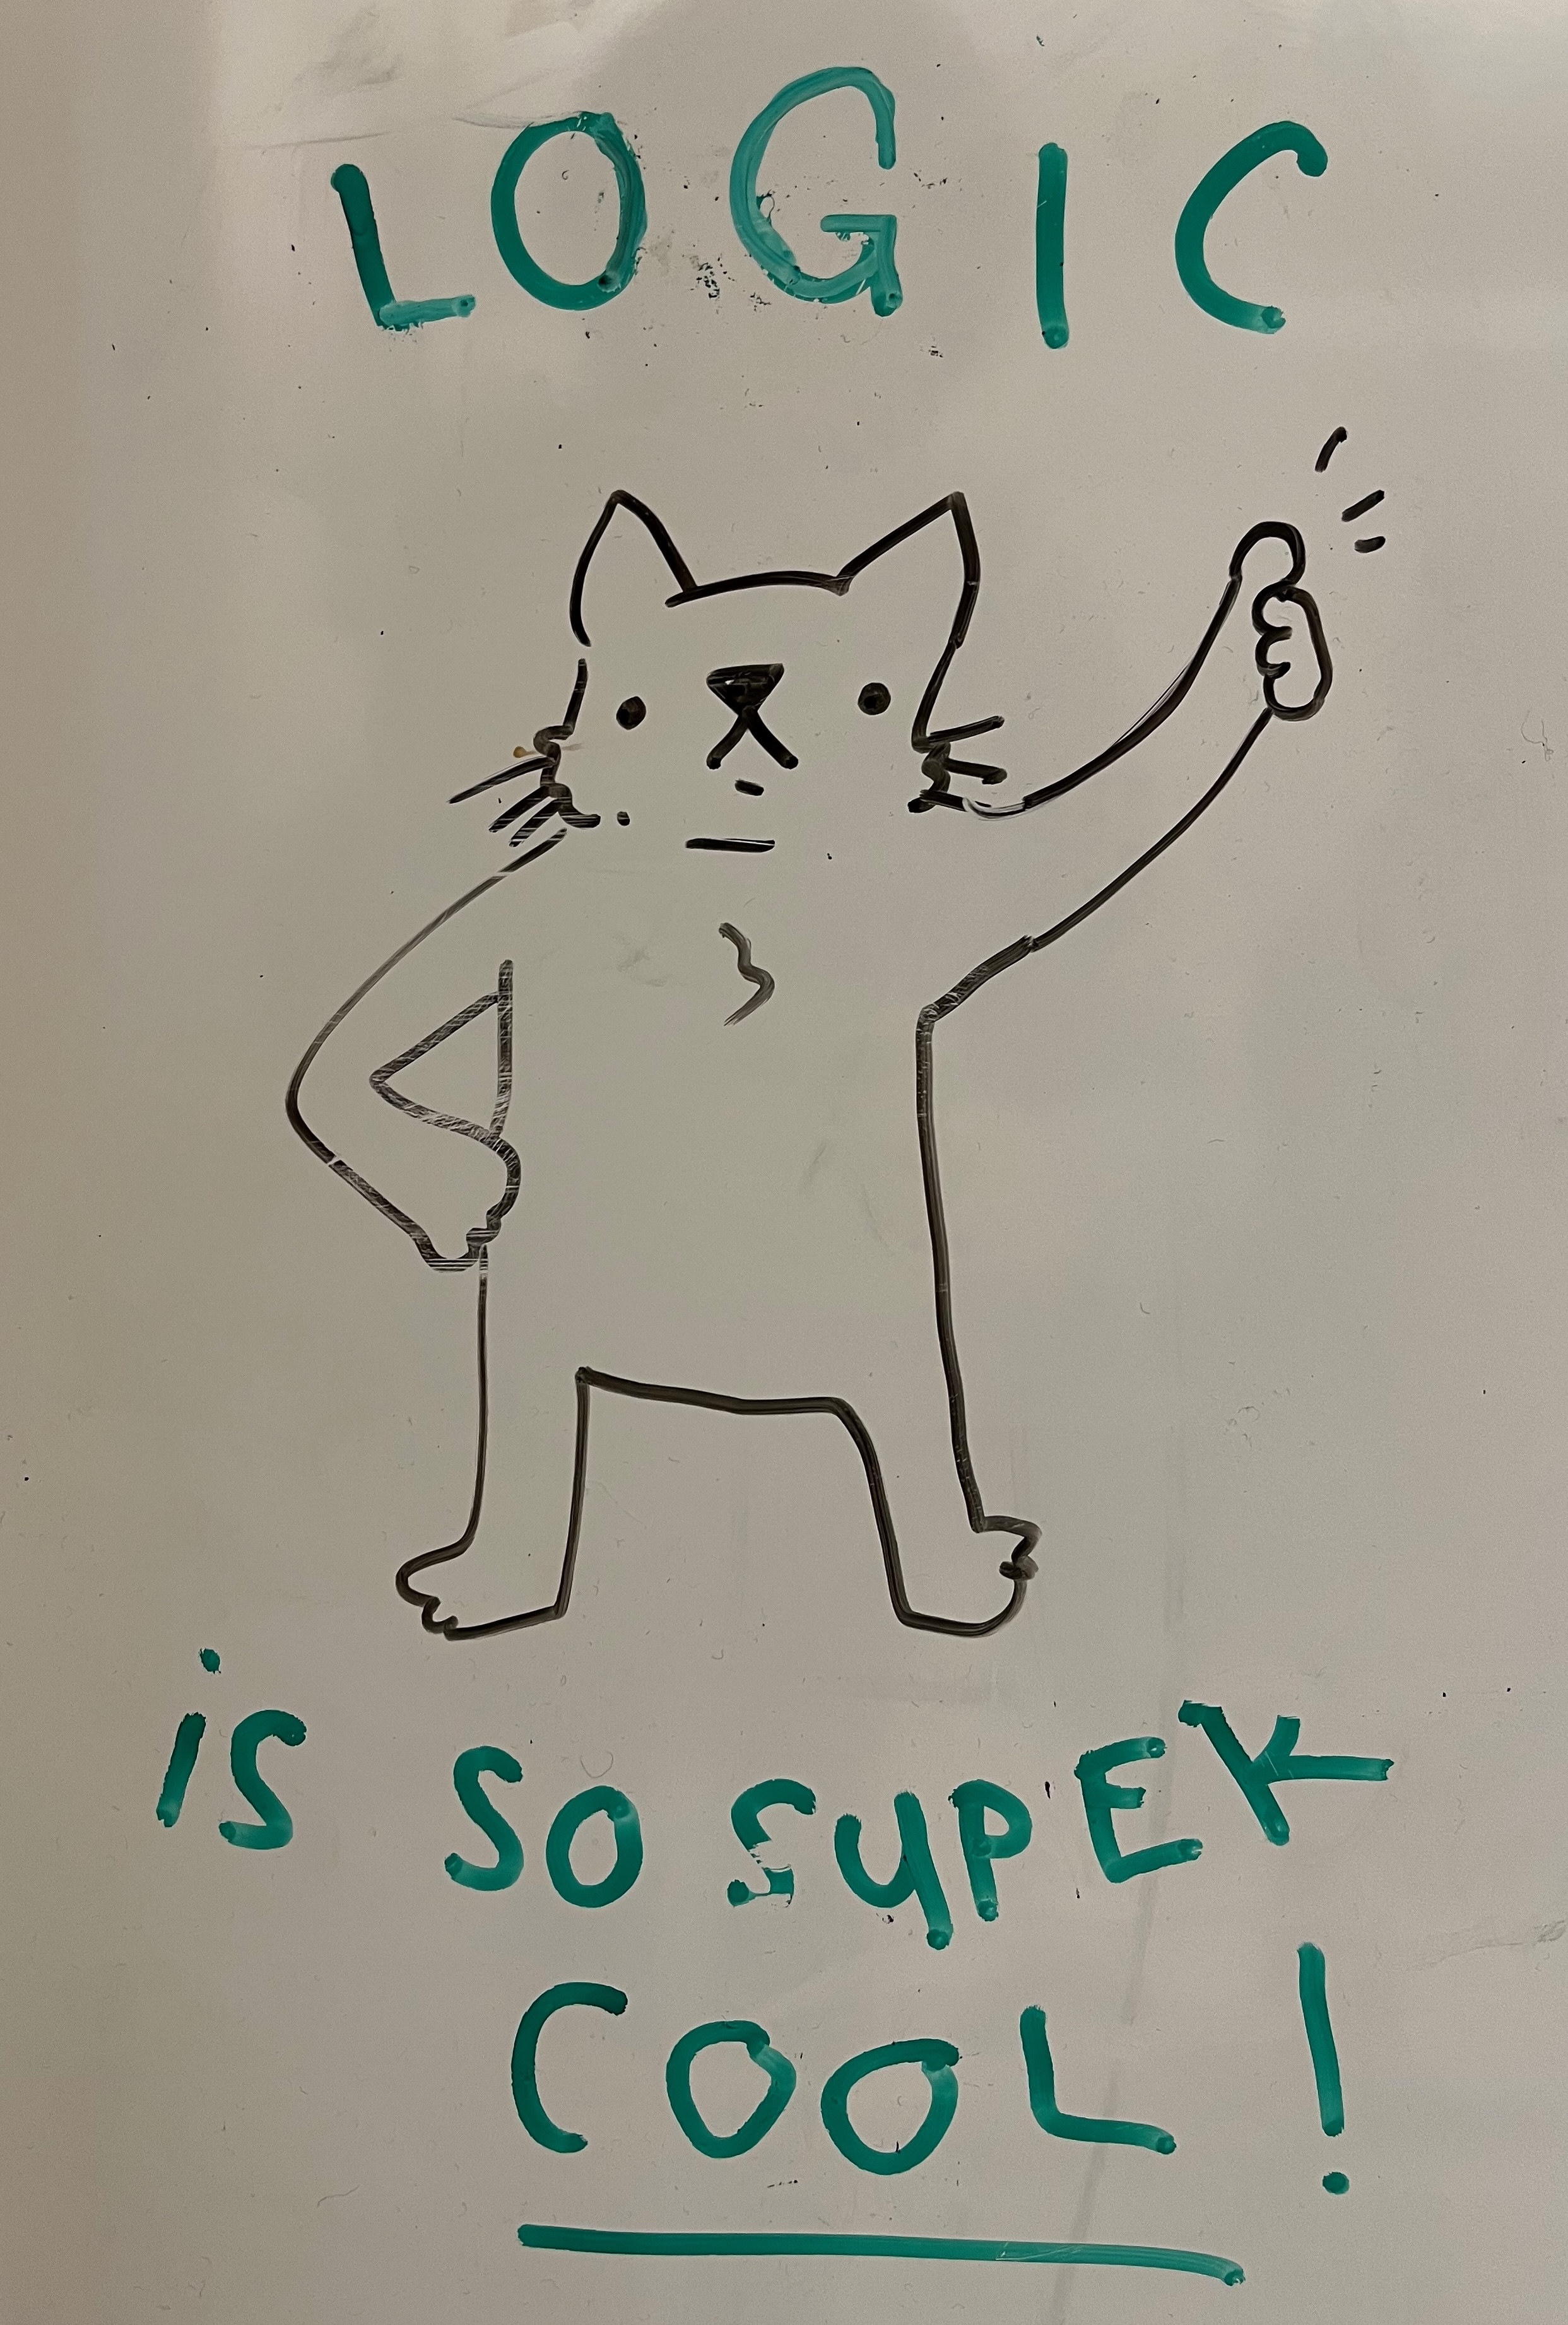 LOGIC
is SO SUPER
COOL!